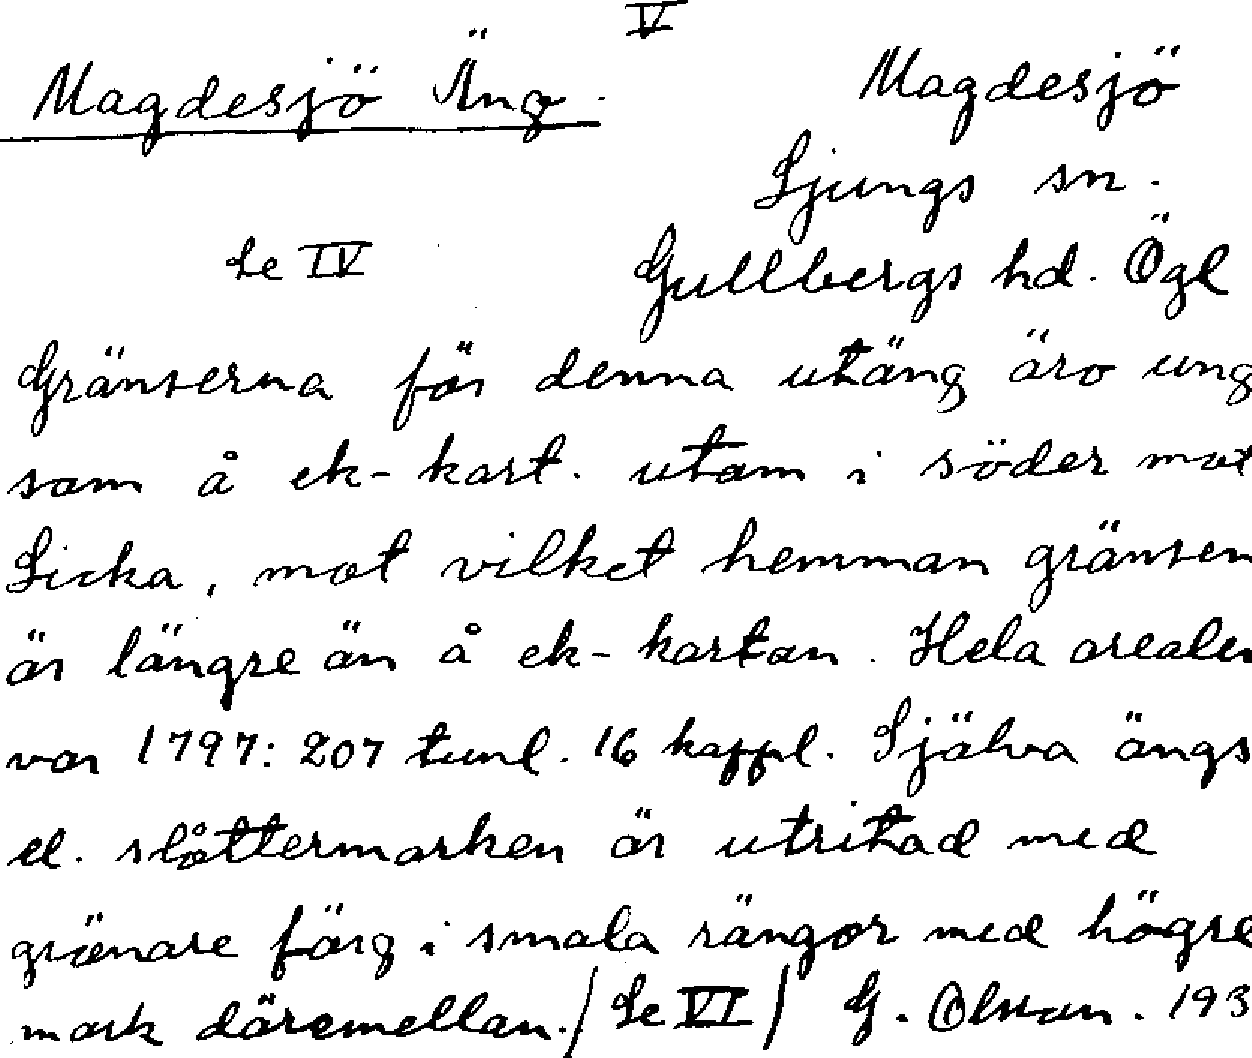 V
Magdesjö Äng. Magdesjö
Ljungs sn.
Se IV Gullbergs hd. Ögl
Gränserna för denna utäng äro ung
som å ek-kart. utom i söder mot
Sicka, mot vilket hemman gränsen
är längre än å ek-kartan. Hela arealen
var 1797: 207 tunl. 16 kappl. Själva ängs
el. slåttermarken är utritad med
grönare färg i smala rängor med högre
mark däremellan. / Se VI / G. Olsson. 193